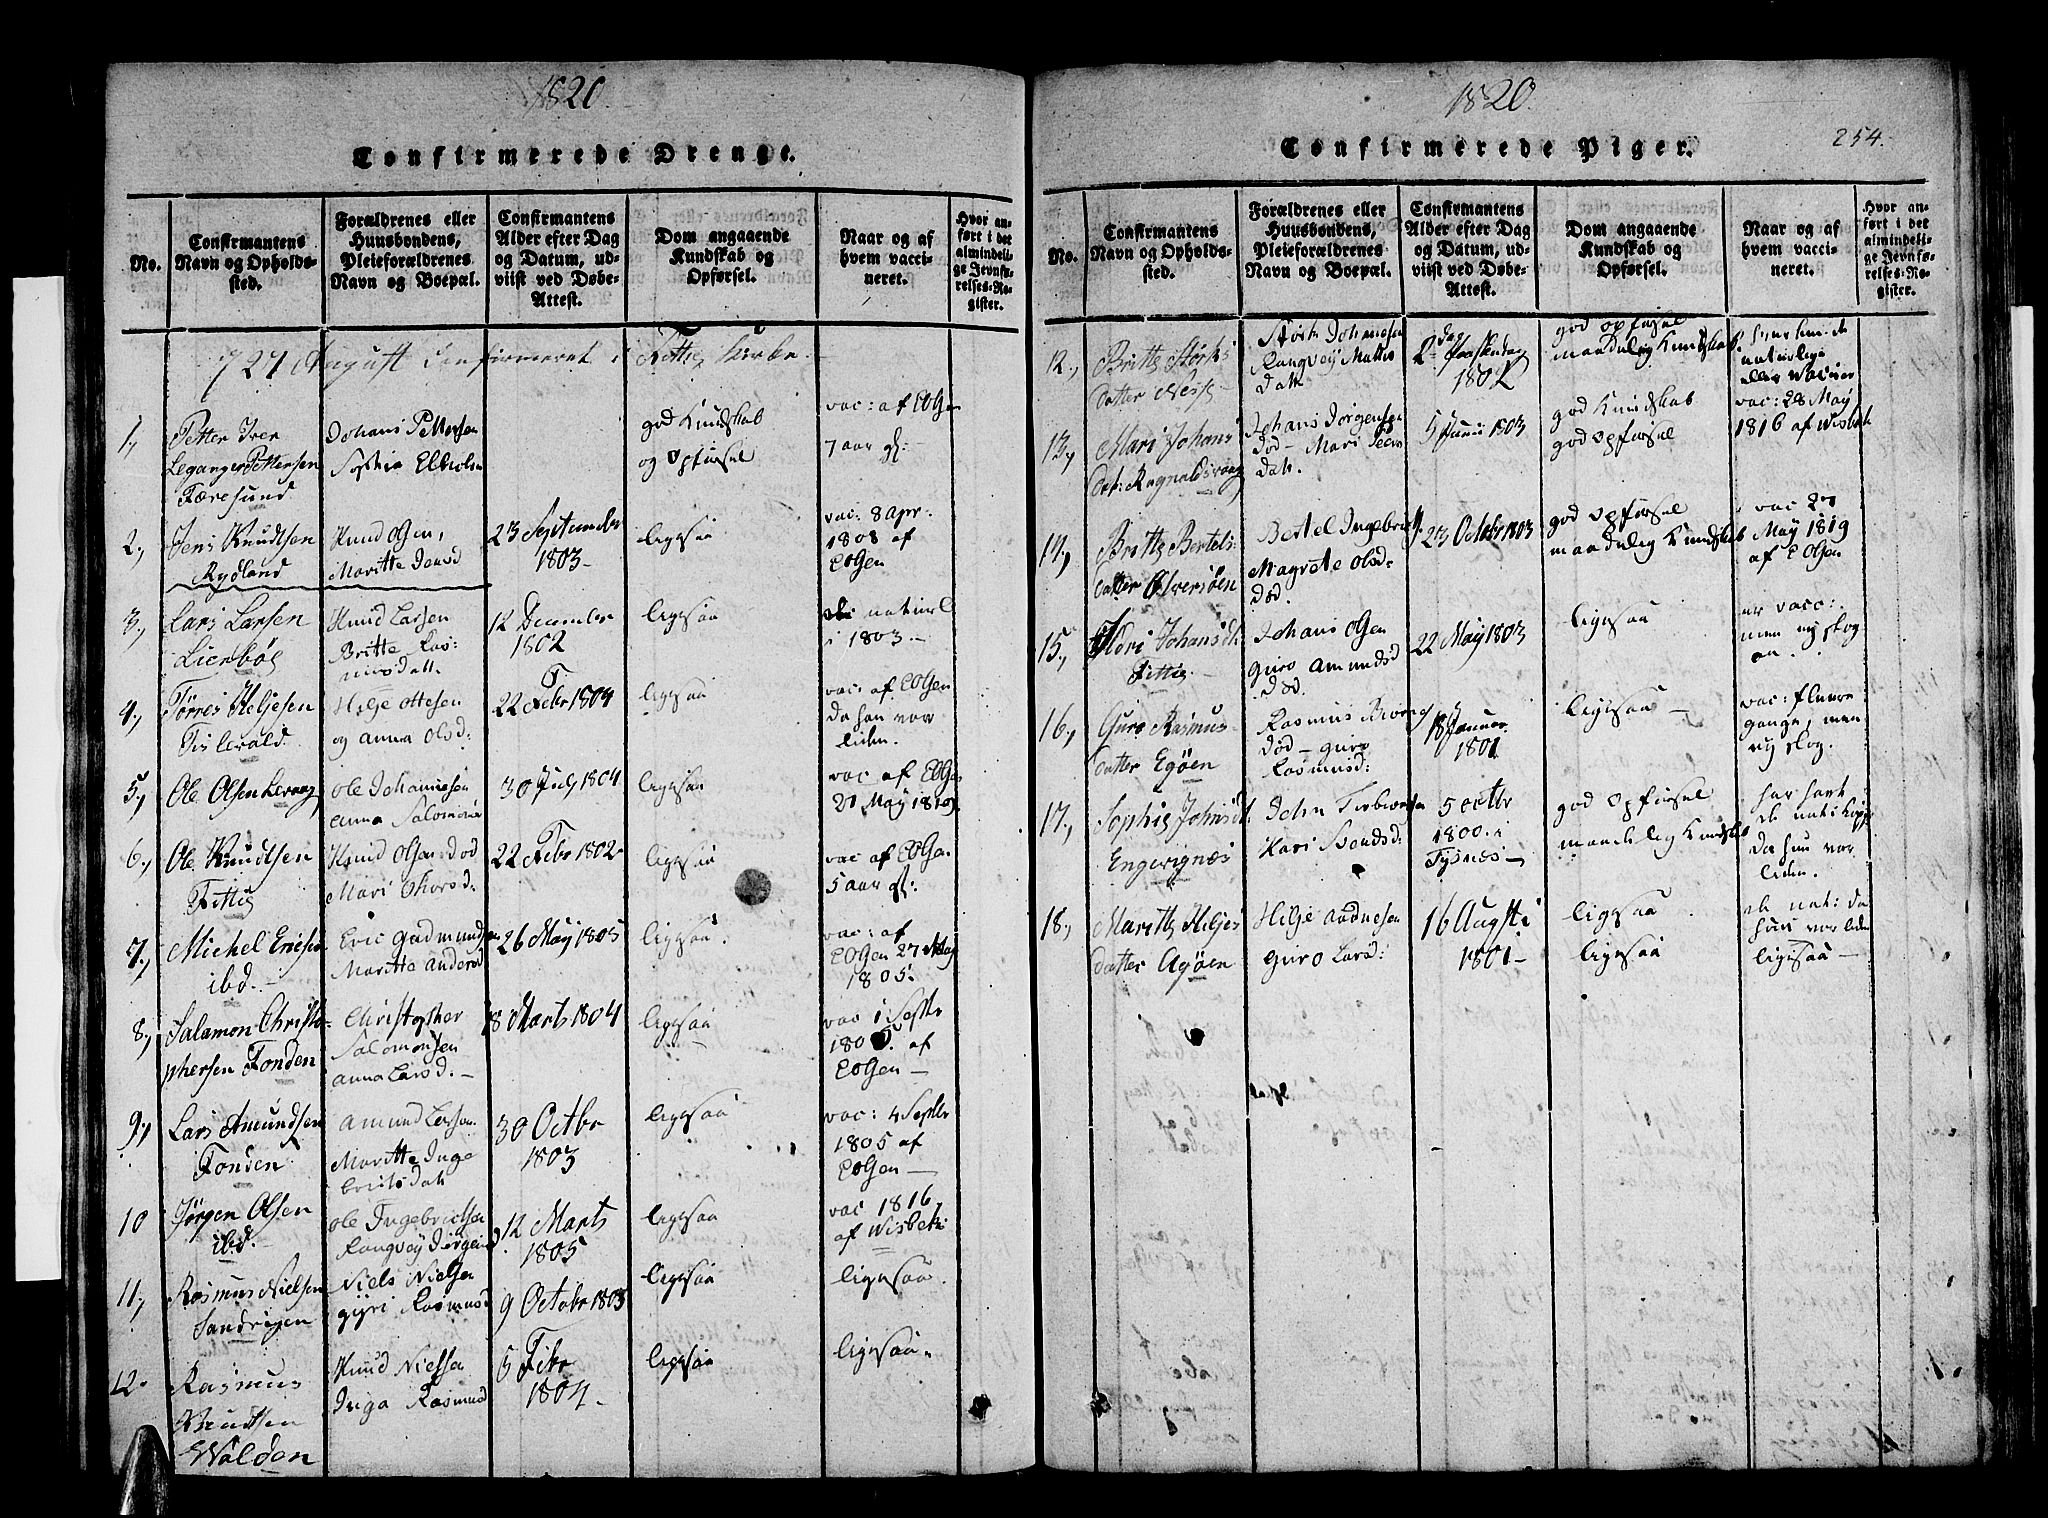 1820.
Confirmerede Drenge.
No.
Confirmantens
Navn og Opholds-
sted.
Forældrenes eller
Huusbondens,
Pleieforældrenes
Navn og Boepæl.
Confirmantens
Alder efter Dag
og Datum, ud-
viist ved Døbe-
Attest.
Dom angaaende
Kundskab og
Opførsel.
Naar og af
hvem vacci-
neret.
Hvor an-
ført i det
almindeli-
ge Jevnfø-
relses-Re-
gister.
27 August Confirmeret i Fittie Kirke
1,
Petter Iver
Leganger Pettersen
Færesund
Johans Pettersen
god Kundskab
og Opførsel
vac: af EOlsen
7 aar gl:
2,
Jens Knudtsen
Rydland
Knud Olsen,
Maritte Jensd
23 September
1803-
ligesaa
vac: 8 apr.
1808 af
EOlsen
3,
Lars Larsen
Lienbøe
Knud Larsen
Britte Ras:
musdatt.
12 December
1802
ligesaa
naturl
i 1803.-
4,
Tørres Heljesen
Helje Ottesen
og Anna Olsd:
22 Febr 1804
ligesaa
vac: af EOlsen
da han var
liden.
5,
Ole Olsen Lervaag
Ole Johannesen
Anna Salomons
30 July 1804
ligesaa
vac af EOlsen
21 May 1819
6,
Ole Knudtsen
Fittie
Knud Olsen død
Mari Thorsd:
22 Febr 1802-
ligesaa
vac af EOlsen
5 aar gl:
7,
Michel Ericsen
ibd.-
Eric Gudmundsen
Maritte Andersd
26 May 1805
ligesaa.
vac: af
EOlsen 27 May
1805.
8,
Salamon Christo-
phersen Fonden
Christopher
Salomonsen
Anna Larsd.-
18 Marts 1804
ligesaa
vac 1 Septr
af
EOlsen-
9,
Lars Amundsen
Fonden
Amund Larsen
Maritte Inge
britsdatt
30 Octbr
1803
ligesaa
vac: 4 Septbr
1805 af
EOlsen-
10
Jørgen Olsen
ibd.
Ole Ingebrictsen
12 Marts
1805
ligesaa
vac 1816,
af Wisbek:
11,
Rasmus Nielsen
Sandvigen
Niels Nielsen
Gyri Rasmusd
9 Octobr 1803
ligesaa
ligesaa.
12.
Rasmus
Knudtsen
Walden
Knud Nielsen
Inga Rasmusd
5 Febr
1804.
ligesaa
ligesaa.
1820.
254.
Confirmerede Piger.
No.
Confirmantens
Navn og Opholds-
sted.
Forældrenes eller
Huusbondens,
Pleieforældrenes
Navn og Boepæl.
Confirmantens
Alder efter Dag
og Datum, ud-
viist ved Døbe-
Attest.
Dom angaaende
Kundskab og
Opførsel.
Naar og af
hvem vacci-
neret.
Hvor an-
ført i det
almindeli-
ge Jevnfø-
relses-Re-
gister.
12,
Britte Størks
datter Nesse
Størk Johannesen
Rangvey Matts
datt
2den Paaskedag
1802
god Opførsel
maadelig Kundskab.
naturlige
eller vaccine
13,
Mari Johans
datt: Ragnaldsvaag
Johans Jørgensen
død - Mari
datt.
5 Junii 1803
god Kundskab
god Opførsel
vac: 28 May
1816 af Wisbek
14,
Britte Bertels
datter
Bertel Ingebrictsen
Magrete Olsd:
død.
23 October 1803
god Opførsel
maadelig Kundskab
vac 27
May 1819
af EOlsen
15,
Johansdt.
Fittie.
Johans Olsen
Guro Amundsd
død.
22 May 1803
ligesaa
er vacc:
men ny
16,
Guro Rasmus
datter Egøen
Rasmus
død - Guro
Rasmusd:
18 Januar
1801
ligesaa -
vac: fleere
gange, men
17,
Sophie Johnsdt.
Engevignæs
John
Kari
5 octbr
1800. i
Tysnes-
god Opførsel
maadelig Kundskab
har havt
da hun var
liden.
18,
Maritte Heljes
datter Agøen
Helje Aadnesen
Guro Larsd:
16 Augsti
1801-
ligesaa
ligesaa
nat: da
hun var liden
ligesaa -